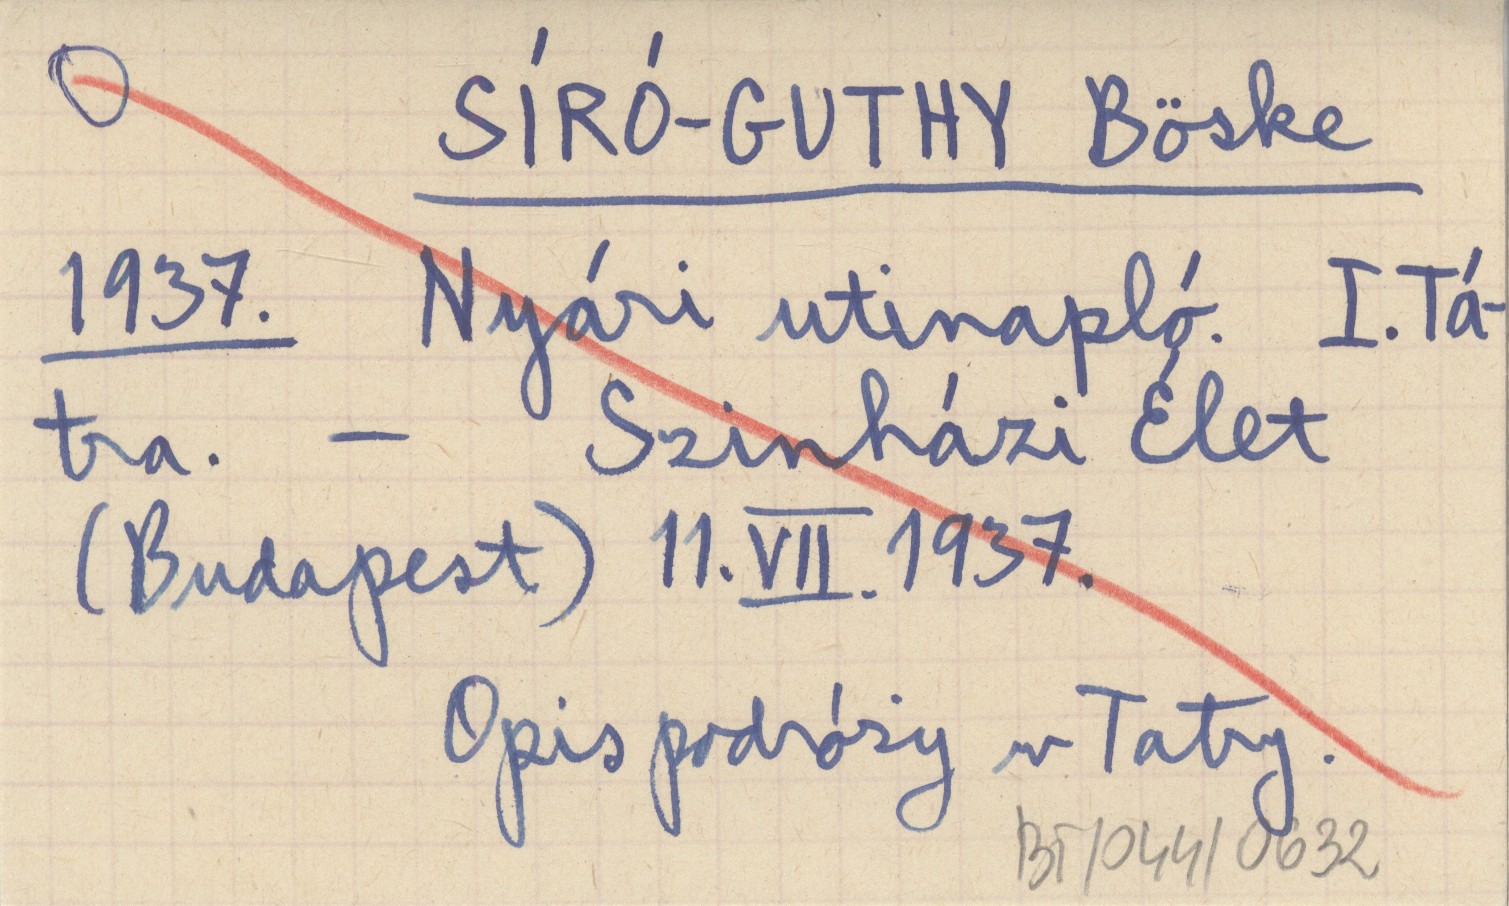 SÍRÓ-GUTHY Böske
1937. Nyári utinapló. I. Tá-
tra. — Szinházi Élet
(Budapest) 11. VII. 1937.
Opis podróży w Tatry.
BT/044/0632